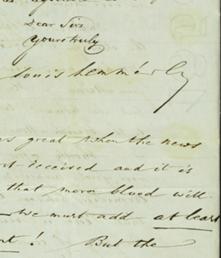 Dear Sir
Yours truly
Louis
as great when the news
received and it is
that more blood will
we must add at least
! But the